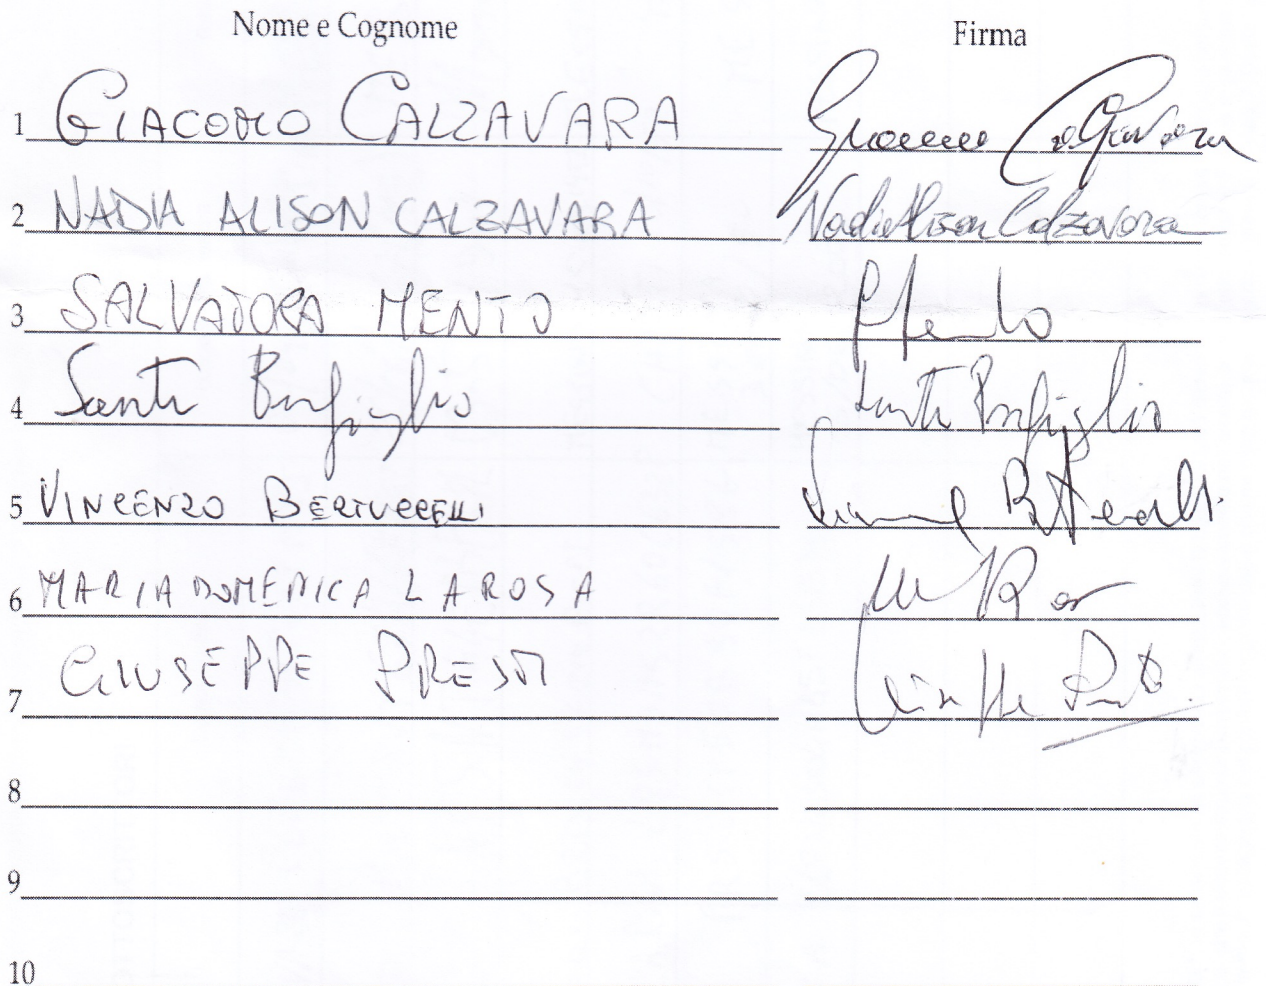 Nome e Cognome Firma
1 GIACOMO CALZAVARA Giacomo Calzavara
2 NADIA ALISON CALZAVARA Nadia Alison Calzavara
3 SALVATORA MENTO
4 Santi Bonfiglio Santi Bonfiglio
5 VINCENZO BERTUCCELLI
6 MARIA DOMENICA LA ROSA
7 GIUSEPPE PRESTI
8
9
10